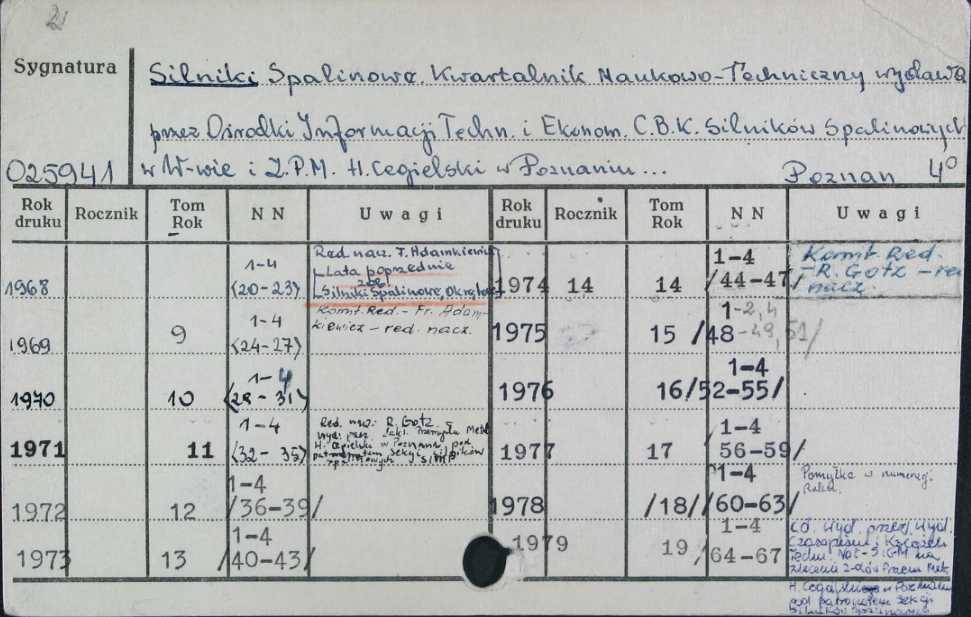 2
Sygnatura
Silniki Spalinowe. Kwartalnik Naukowo-Techniczny wydawa
przez Ośrodki Informacji Techn. i Ekonom. C.B.K. Silników Spalinowych
025941 w W-wie i Z.P.M. H. Cegielski w Poznaniu... Poznań 4°
Rok druku Rocznik Tom Rok NN Uwagi Rok druku Rocznik Tom Rok NN Uwagi
1968 1-4 (20-23)
Red nacz. F. Adamkiewicz
Lata poprzednie
zob.
Silniki Spalinowe, Okrętowe
1974 14 14 1-4 /44-47/
Komit. Red.
R. Gotz - red
nacz.
1969 9 1-4 (24-27)
Komit. Red. - Fr. Adam-
kiewicz - red. nacz.
1975 15 1-2,4 /48-49,51/
1970 10 1-4 (28-31)
1976 16 1-4 /52-55/
1971 11 1-4 (32-35)
Red. R. Gotz
H. Cegielski w Poznaniu pod
patronatem Sekcji Silników
Spalinowych SIMP
1977 17 1-4 56-59/
1972 12 1-4 /36-39/
1978 /18/ 1-4 /60-63/
Pomyłka w numeracji
1973 13 1-4 /40-43/
1979 19 1-4 /64-67
Wyd. przez Wyd.
Czasopism i Książek
Techn. NOT-SIGMA na
zlecenie Z-dów Przem. Met.
H. Cegielskiego w Poznaniu
pod patronatem Sekcji
Silników Spalinowych